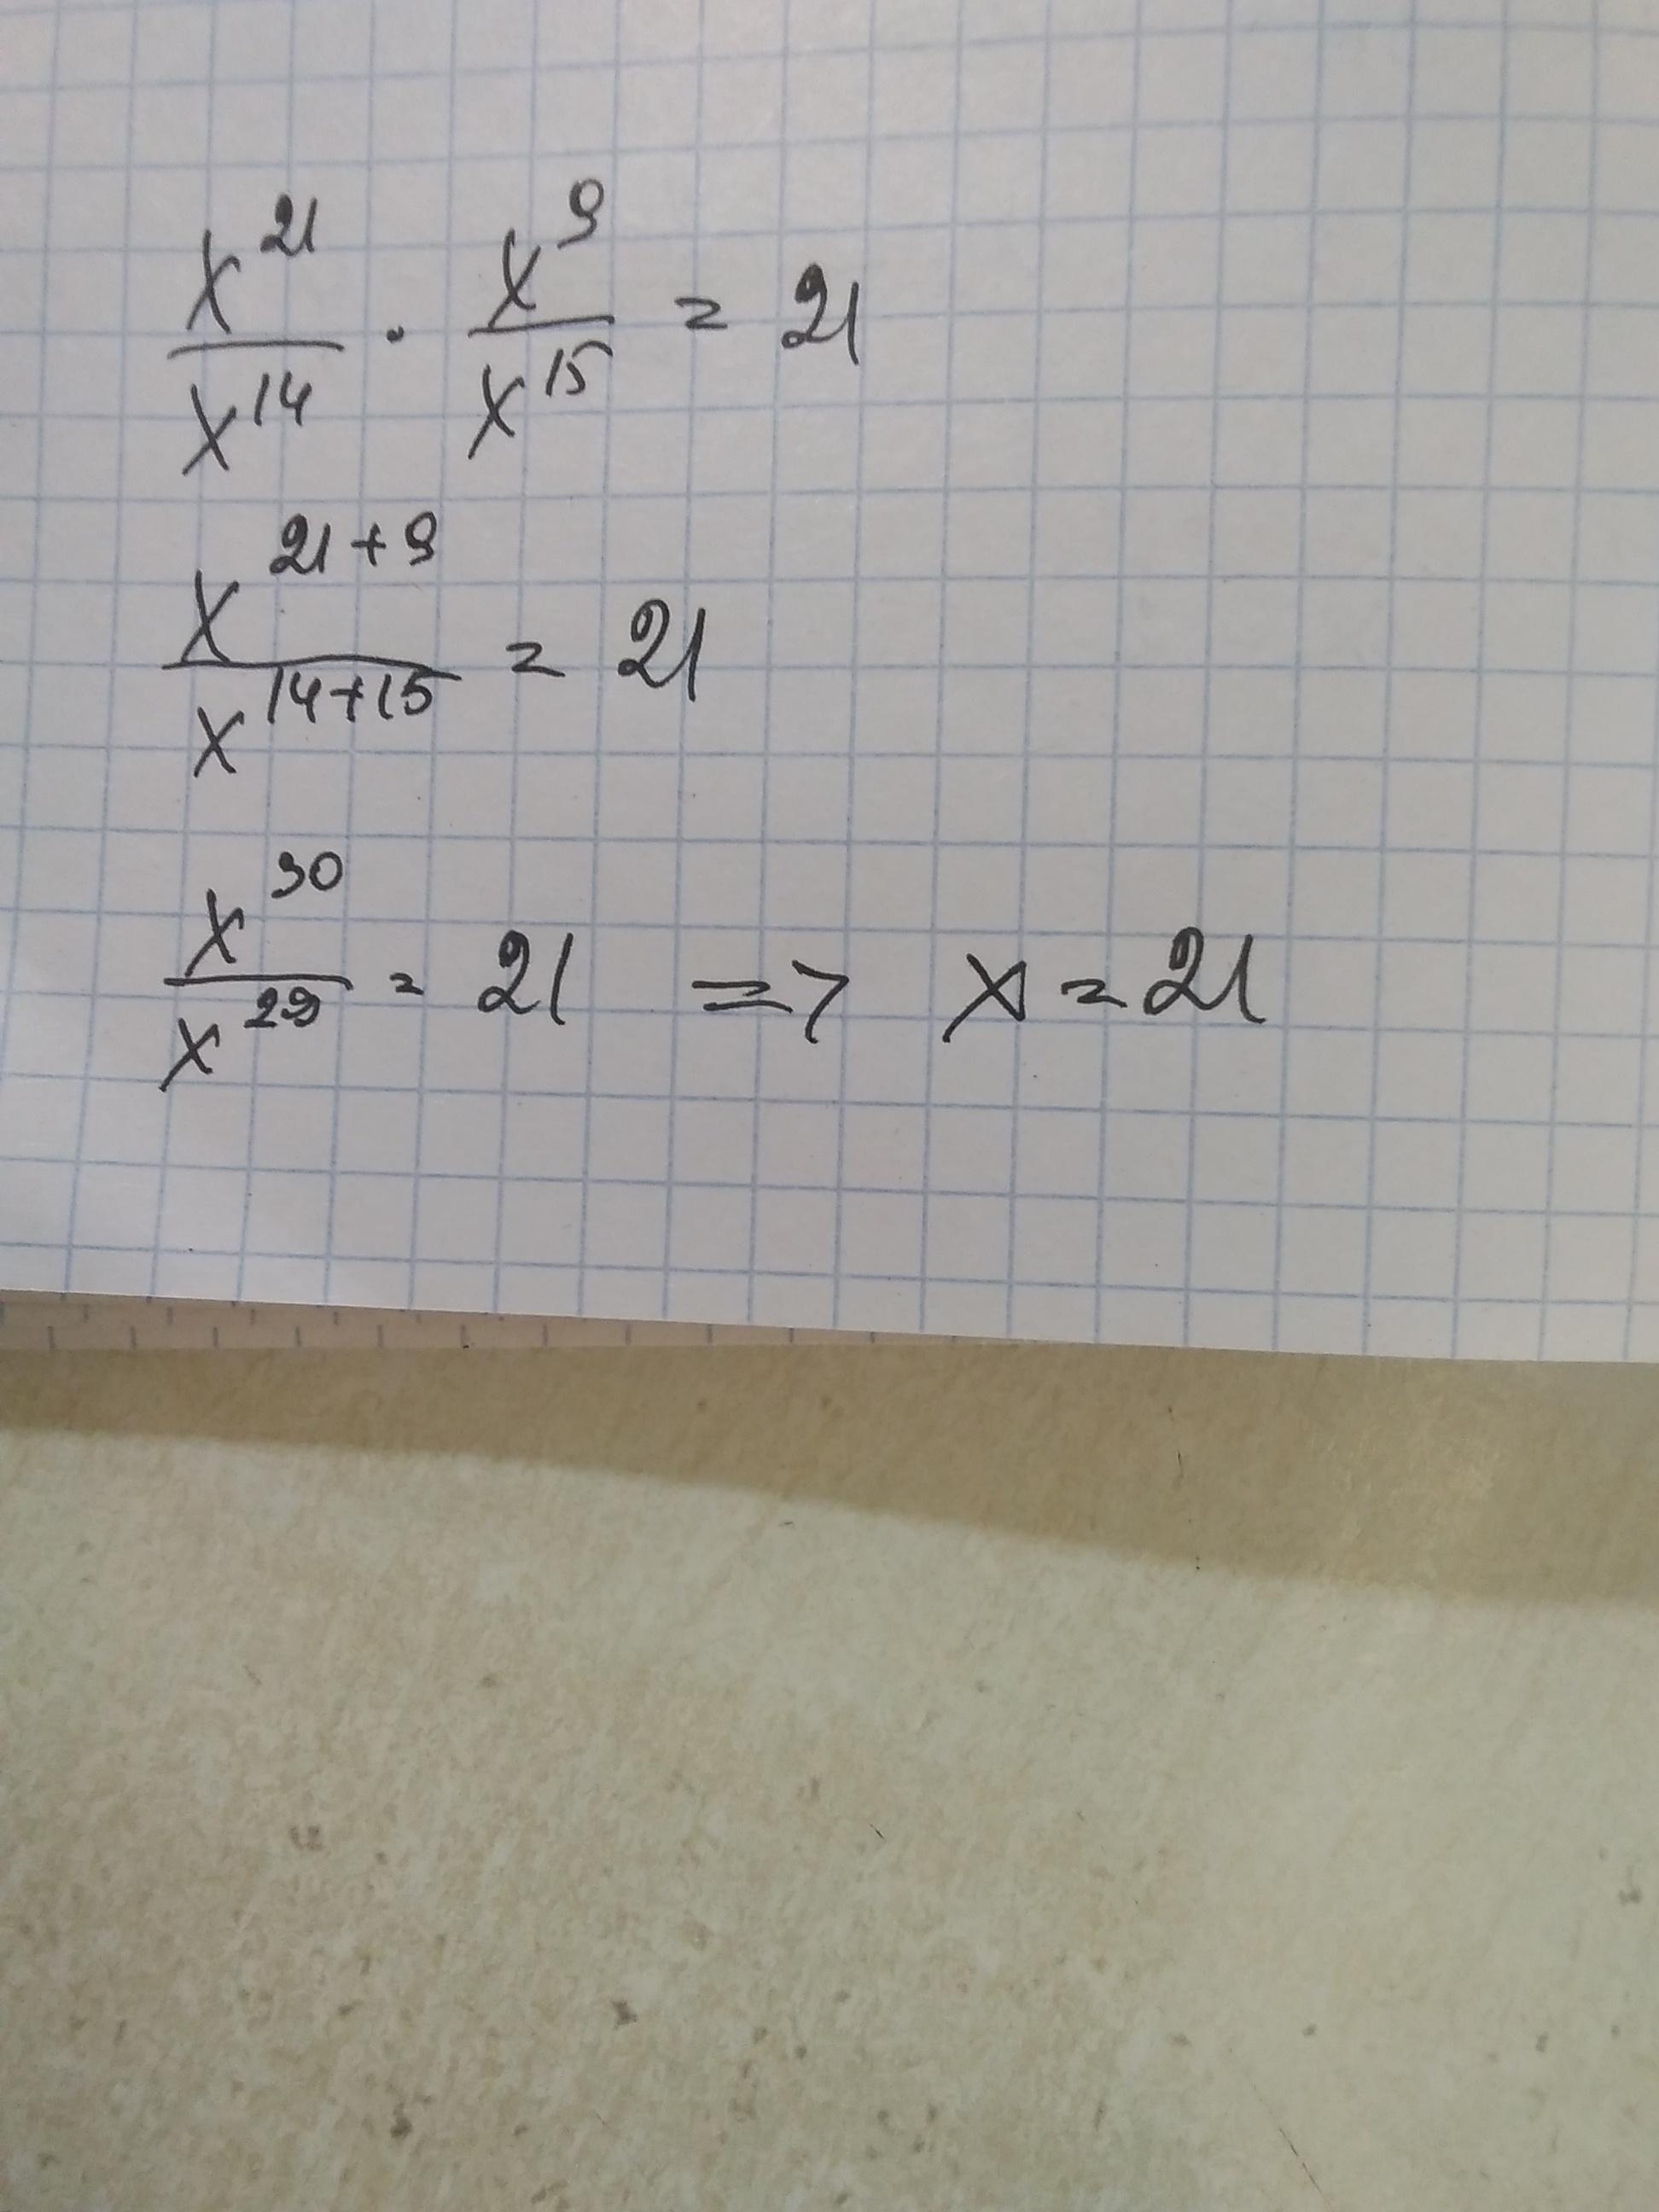 x^21/x^14 · x^9/x^15 = 21
x^(21+9)/x^(14+15) = 21
x^30/x^29 = 21 => x = 21